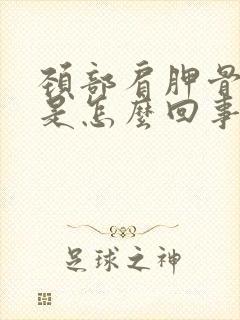 頸部肩胛骨
是怎麼回事
足球之神